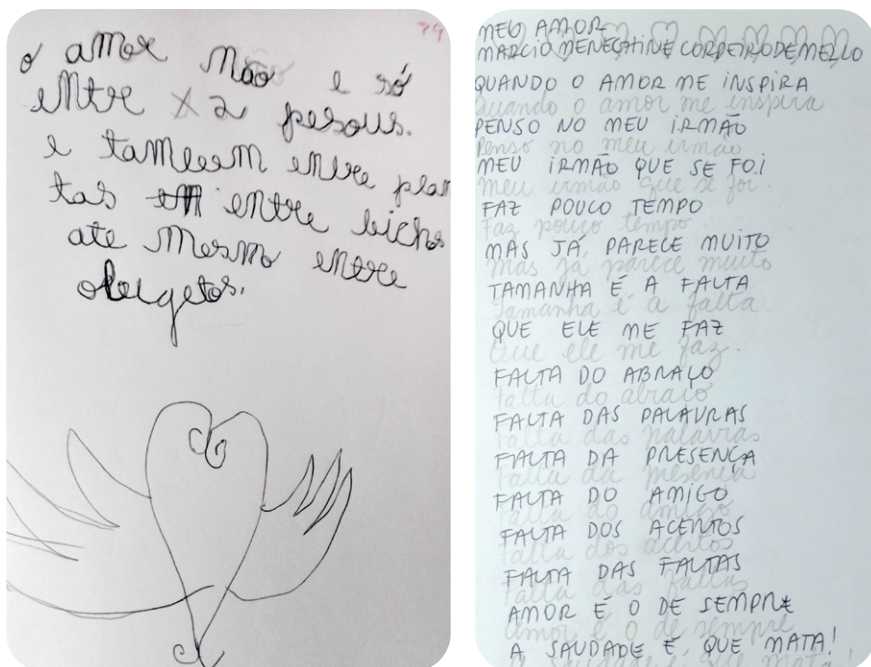 79
o amor não e só
entre X 2 pesous.
e tambem entre plan
tas em entre bichos
ate mesmo entre
obigetos.
MEU AMOR
MARCIO MENEGHINE CORDEIRO DE MELLO
QUANDO O AMOR ME INSPIRA
Quando o amor me inspira
PENSO NO MEU IRMÃO
Penso no meu irmão
MEU IRMÃO QUE SE FOI
meu irmão que se foi.
FAZ POUCO TEMPO
Faz pouco tempo.
MAS JÁ PARECE MUITO
mas já parece muito
TAMANHA É A FALTA
Tamanha é a falta
QUE ELE ME FAZ
Que ele me faz.
FALTA DO ABRAÇO
Falta do abraço
FALTA DAS PALAVRAS
Falta das palavras
FALTA DA PRESENÇA
Falta da presença
FALTA DO AMIGO
Falta do amigo
FALTA DOS ACERTOS
Falta dos acertos
FALTA DAS FALTAS
Falta das faltas
AMOR É O DE SEMPRE
amor é o de sempre
A SAUDADE É QUE MATA!
a saudade é que mata!